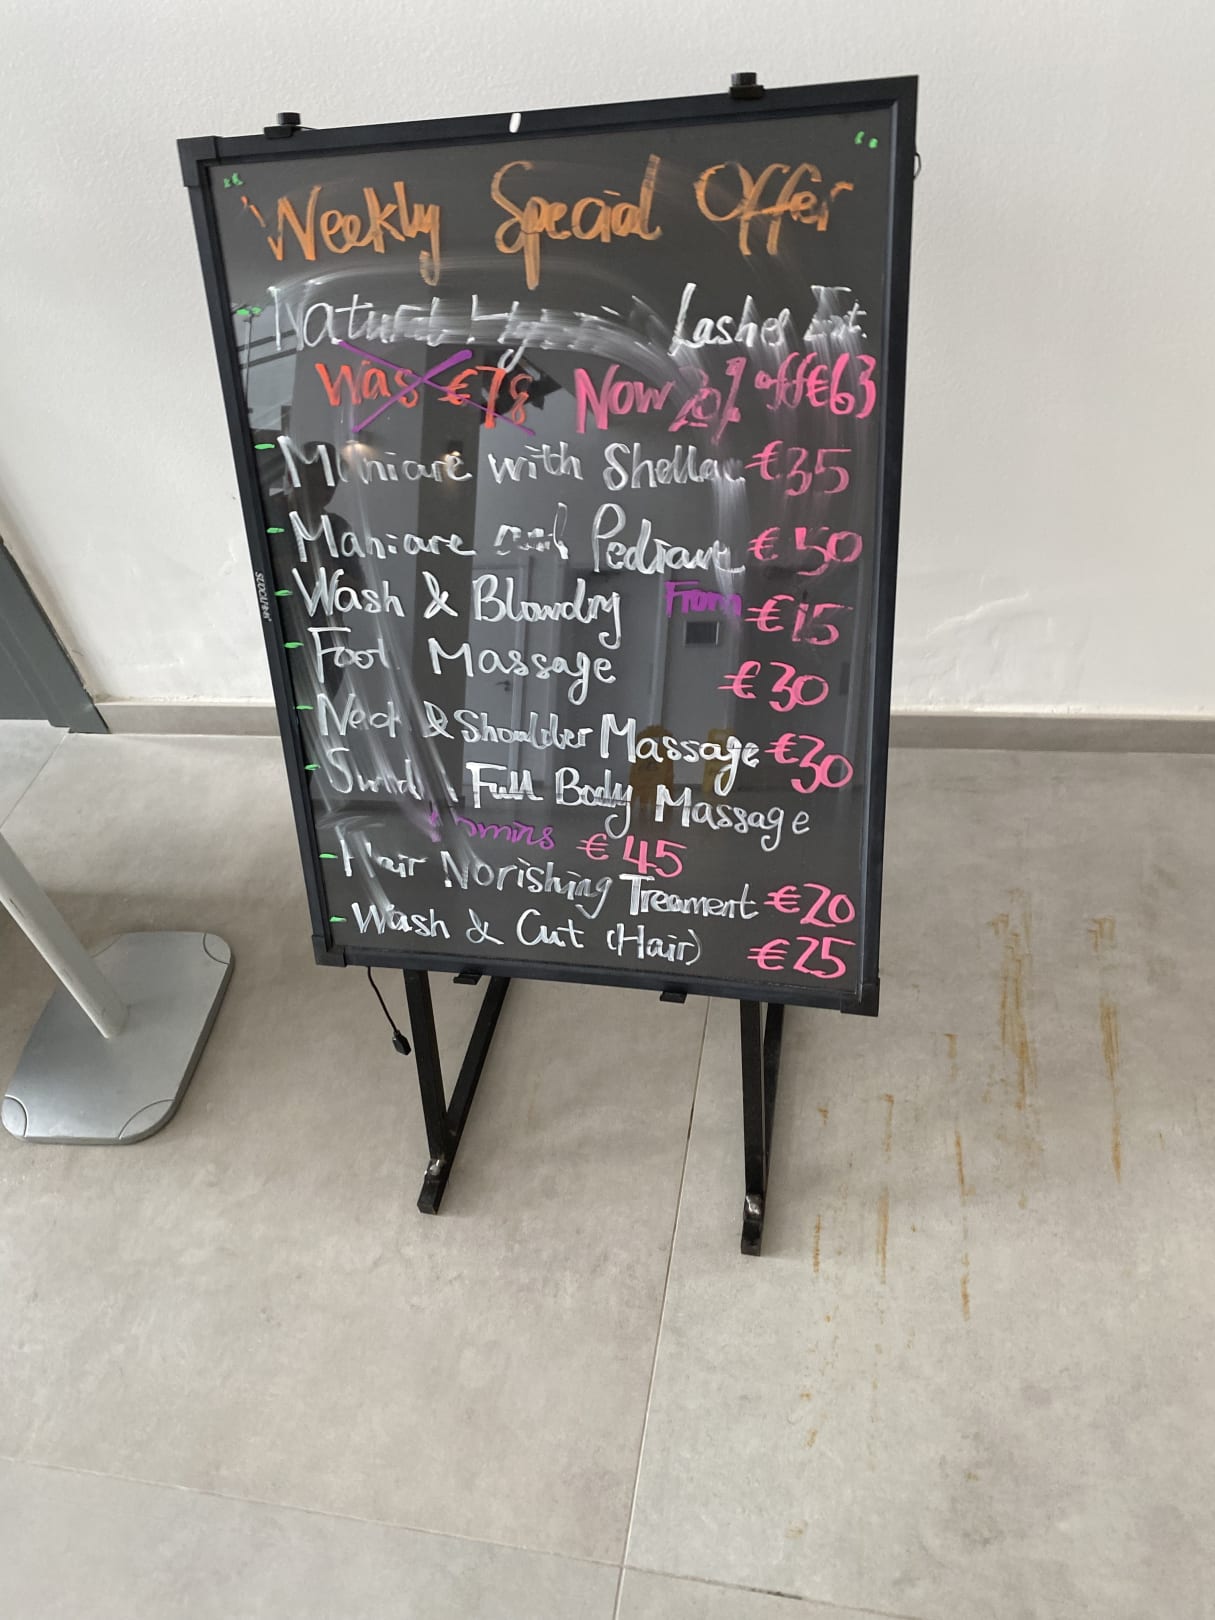 Weekly Special Offer
Natural Lashes Ext.
Was €78 Now 20% off €63
Manicure with Shellac €35
Manicure and Pedicure €50
Wash & Blowdry From €15
Foot Massage €30
Neck & Shoulder Massage €30
Full Body Massage
mins €45
Hair Norishing Treament €20
Wash & Cut (Hair) €25